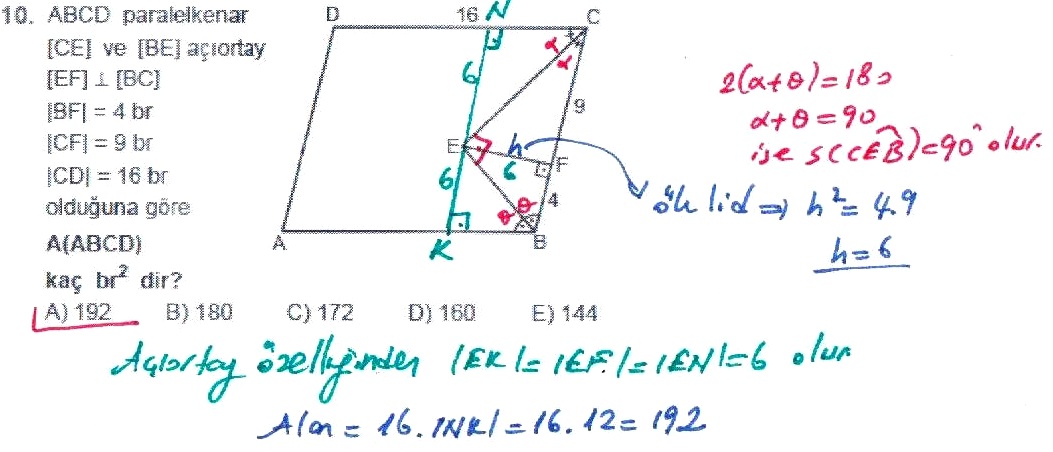 10. ABCD paralelkenar
[CE] ve [BE] açıortay
[EF] ⊥ [BC]
|BF| = 4 br
|CF| = 9 br
|CD| = 16 br
olduğuna göre
A(ABCD)
kaç br² dir?
A) 192 B) 180 C) 172 D) 160 E) 144
D 16 N C
α α
6
9
E h 6 F
6
θ θ 4
A K B
2(α+θ)=180
α+θ=90
ise s(CEB)=90° olur.
öklid ⇒ h²=4.9
h=6
Açıortay özelliğinden |EK|=|EF|=|EN|=6 olur
Alan = 16.|NK|=16.12=192